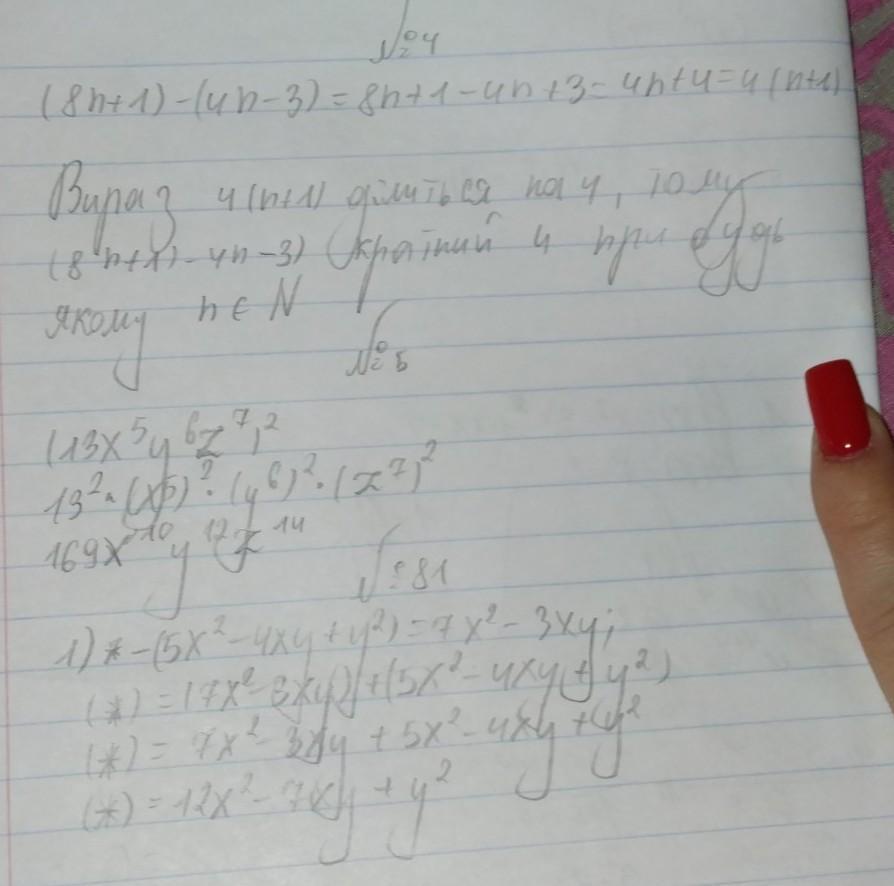 №4
(8n+1)-(4n-3)=8n+1-4n+3=4n+4=4(n+1)
Вираз 4(n+1) ділиться на 4, тому
(8n+1)-4n-3) кратний 4 при будь
якому n∈N
№5
(13x⁵y⁶z⁷)²
13²·(x⁵)²·(y⁶)²·(z⁷)²
169x¹⁰y¹²z¹⁴
№81
1) *-(5x²-4xy+y²)=7x²-3xy;
(*)=(7x²-3xy)+(5x²-4xy+y²)
(*)=7x²-3xy+5x²-4xy+y²
(*)=12x²-7xy+y²